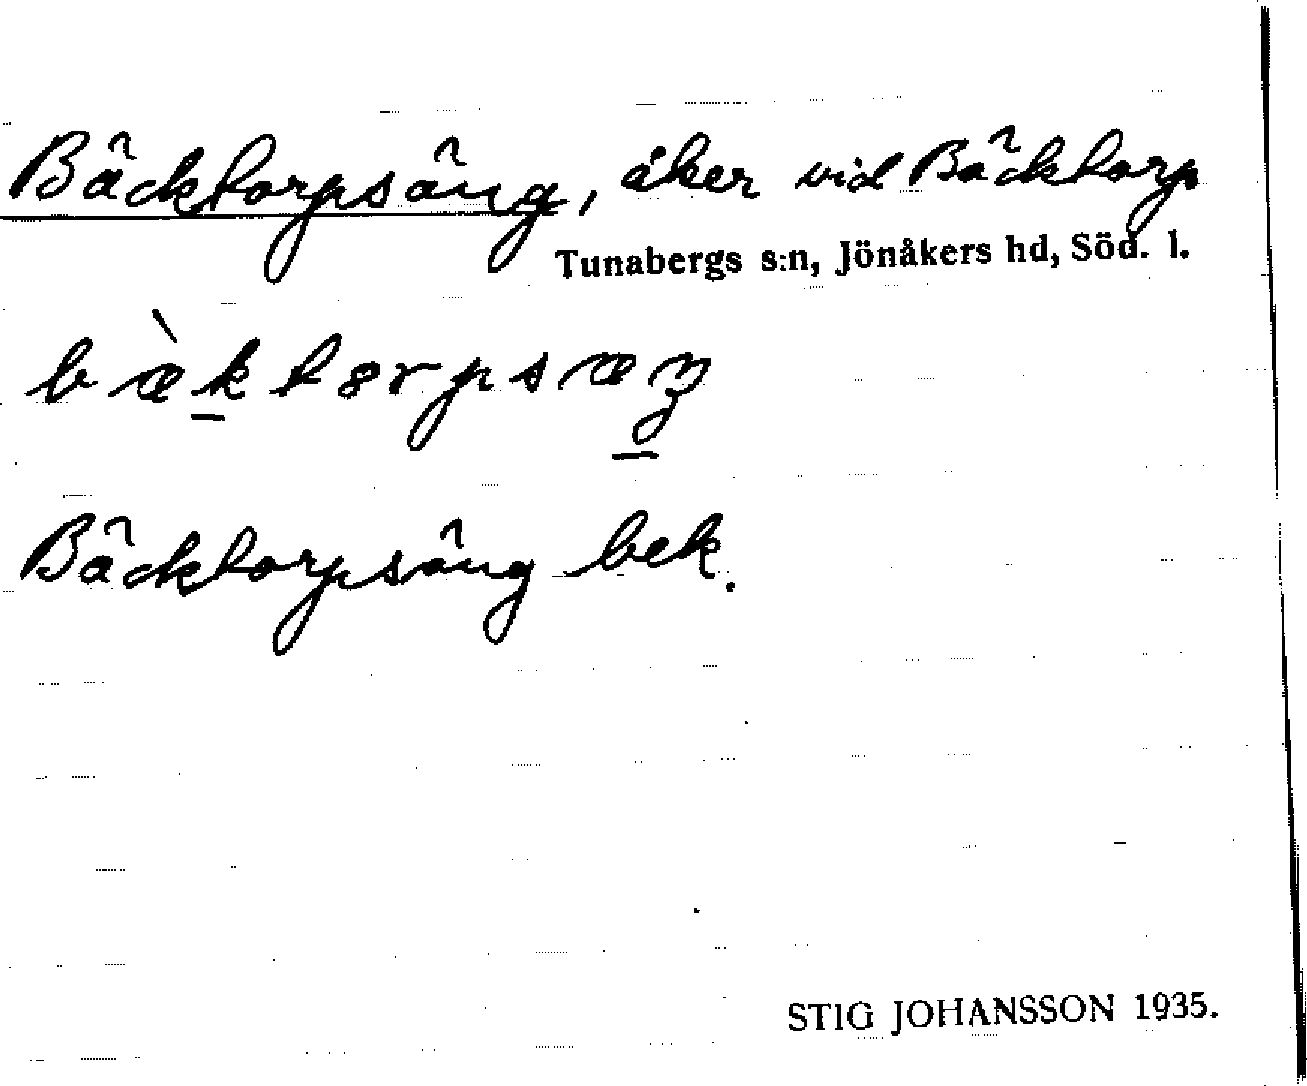 Bäcktorpsäng, åker vid Bäcktorp
Tunabergs s:n, Jönåkers hd, Söd. l.
bæ̀k̲tɔrpsæŋ̲
Bäcktorpsäng bek.
STIG JOHANSSON 1935.